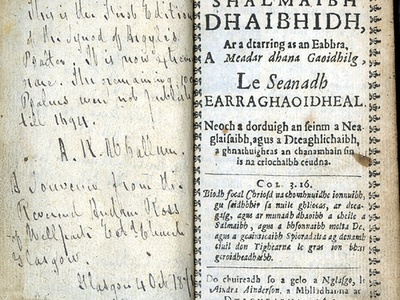 This is the First Edition
of the Synod of Argyle's
Psalter. It is now extreme
rare. The remaining 100
Psalms were not publish
till 1694.
A. K. McCallum.
A Souvenir from the
Reverend Andam Ross
Wellpark Est Church
Glasgow
Glasgow 4 Oct 187
SHALMAIBH
DHAIBHIDH,
Ar a dtarring as an Eabbra,
A Meadar dhana Gaoidhilg,
Le Seanadh
EARRAGHAOIDHEAL
Neoch a dorduigh an seinm a Nea
glaisaibh, agus a Dteaghlichaibh,
a ghnathuigheas an chanamhain sin
is na criochaibh ceudna.
COL 3. 16.
Biodh focal Chriosd na chomhnuidhe ionnuibh,
gu saidhbhir sa nuile ghliocas, ar dtea-
gasg, agus ar munadh dhaoibh a cheile a
Salmaibh, agus a bhfonnaibh molta De,
agus a gcainticaibh Spioradalta ag deanamh
ciuil don Tighearna le gras ion bhur
gcroidheadhaibh.
Do chuireadh so a gclo a Nglasgo, le
Aindra Ainderson, a Mbliadhna